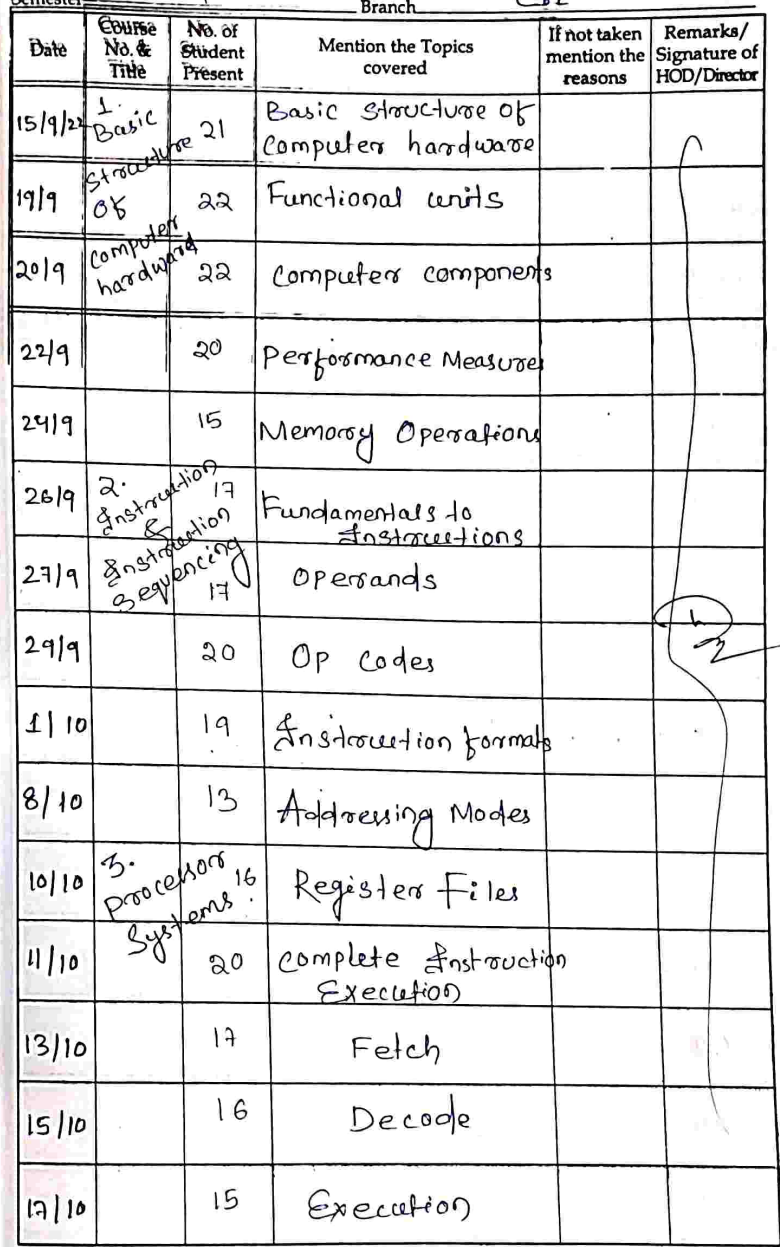 Semester
Branch
Date
Course No. & Title
No. of Student Present
Mention the Topics covered
If not taken mention the reasons
Remarks/ Signature of HOD/Director
15/9/22 1. Basic Structure of Computer hardward 21 Basic Structure of Computer hardware
19/9 22 Functional units
20/9 22 Computer components
22/9 20 Performance Measures
24/9 15 Memory Operations
26/9 2. Instruction & Instruction Sequencing 17 Fundamentals to Instructions
27/9 17 Operands
29/9 20 Op codes
1/10 19 Instruction formats
8/10 13 Addressing Modes
10/10 3. Processor Systems 16 Register Files
11/10 20 Complete Instruction Execution
13/10 17 Fetch
15/10 16 Decode
17/10 15 Execution